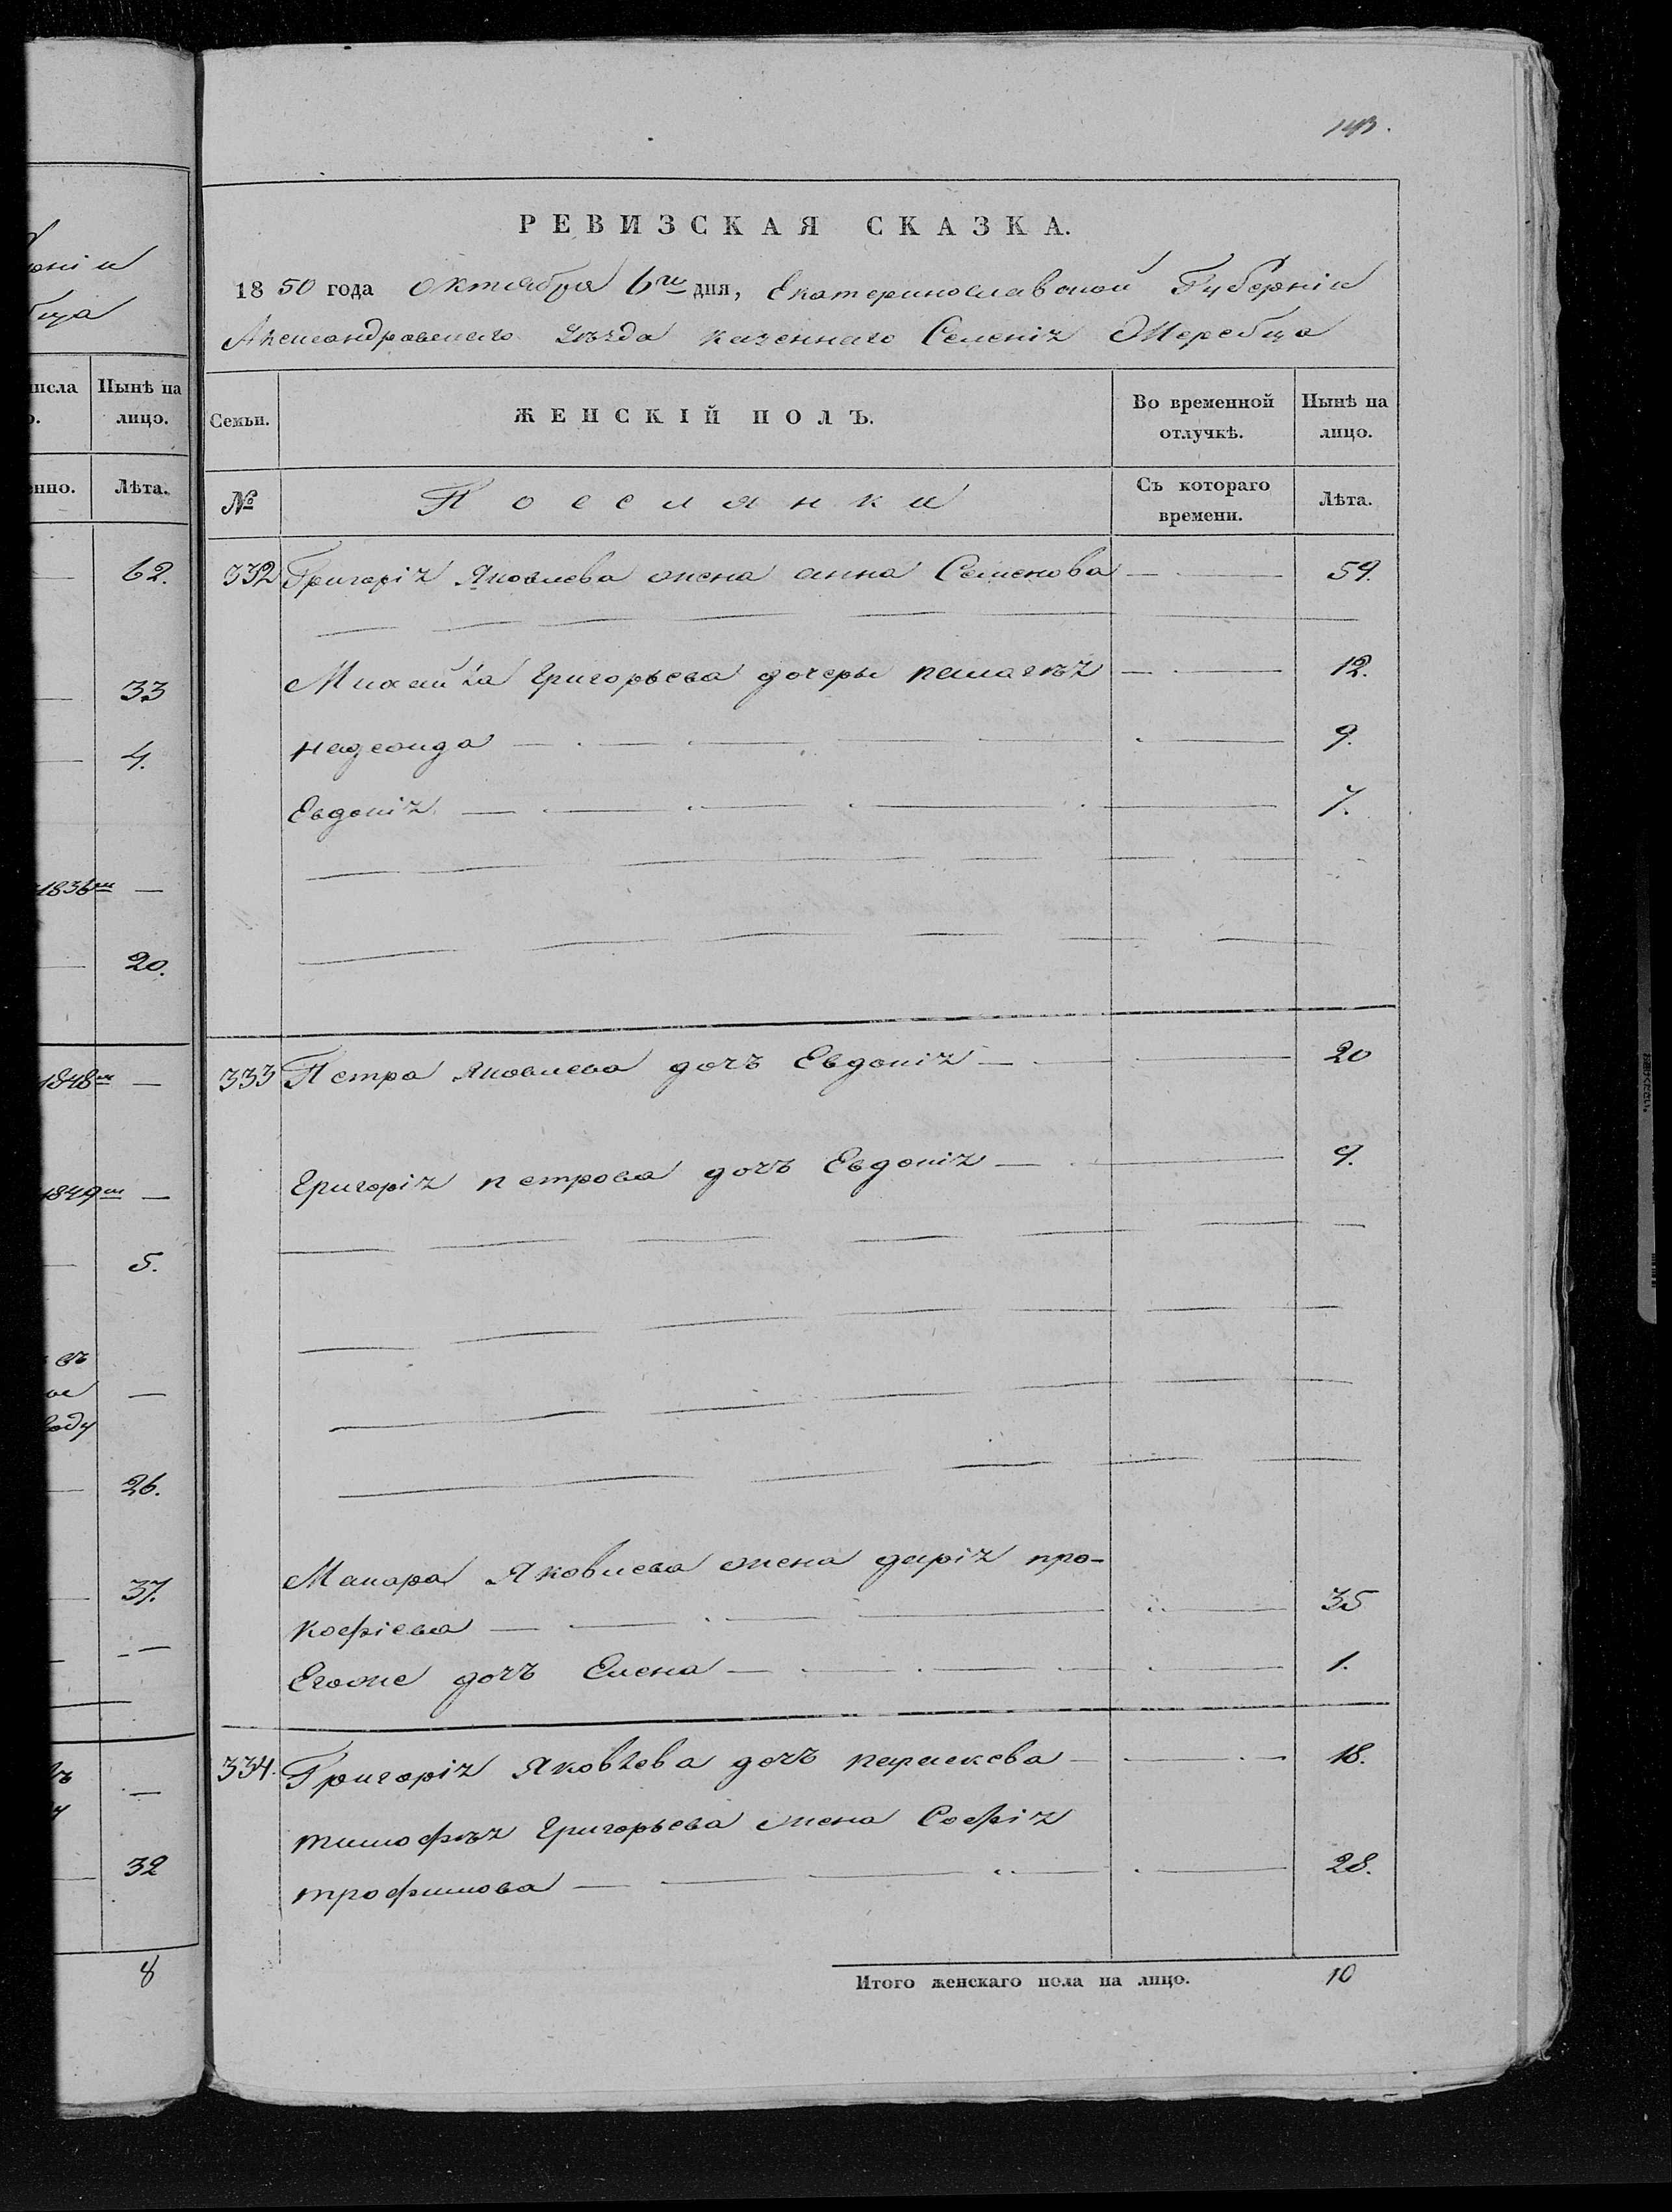 143.
РЕВИЗСКАЯ СКАЗКА.
1850 года Октября 6го дня, Екатеринославской Губерніи
Александровскаго Уѣзда казеннаго Селенія Жеребца
Семьи.
ЖЕНСКІЙ ПОЛЪ.
Во временной отлучкѣ.
Нынѣ на лицо.
№
Поселянки
Съ котораго времени.
Лѣта.
332 Григорія Яковлева жена анна Семенова — 59.
Михайла Григорьева дочеры пелагѣя — 12.
надежда — 9.
Евдокія — 7.
333 Петра Яковлева дочъ Евдокія — 20
Григорія петрова дочъ Евдокія — 9.
Макара Яковлева жена дарія про-
кофіева — 35
Егоже дочъ Елена — 1.
334. Григорія Яковлева дочъ параскева — 18.
тимофѣя Григорьева жена Софія
трофимова — 28.
Итого женскаго пола на лицо. 10
Нынѣ на
лицо.
Лѣта.
62.
33
4.
1836го —
20.
1848го —
1849го —
5.
26.
37.
32
8